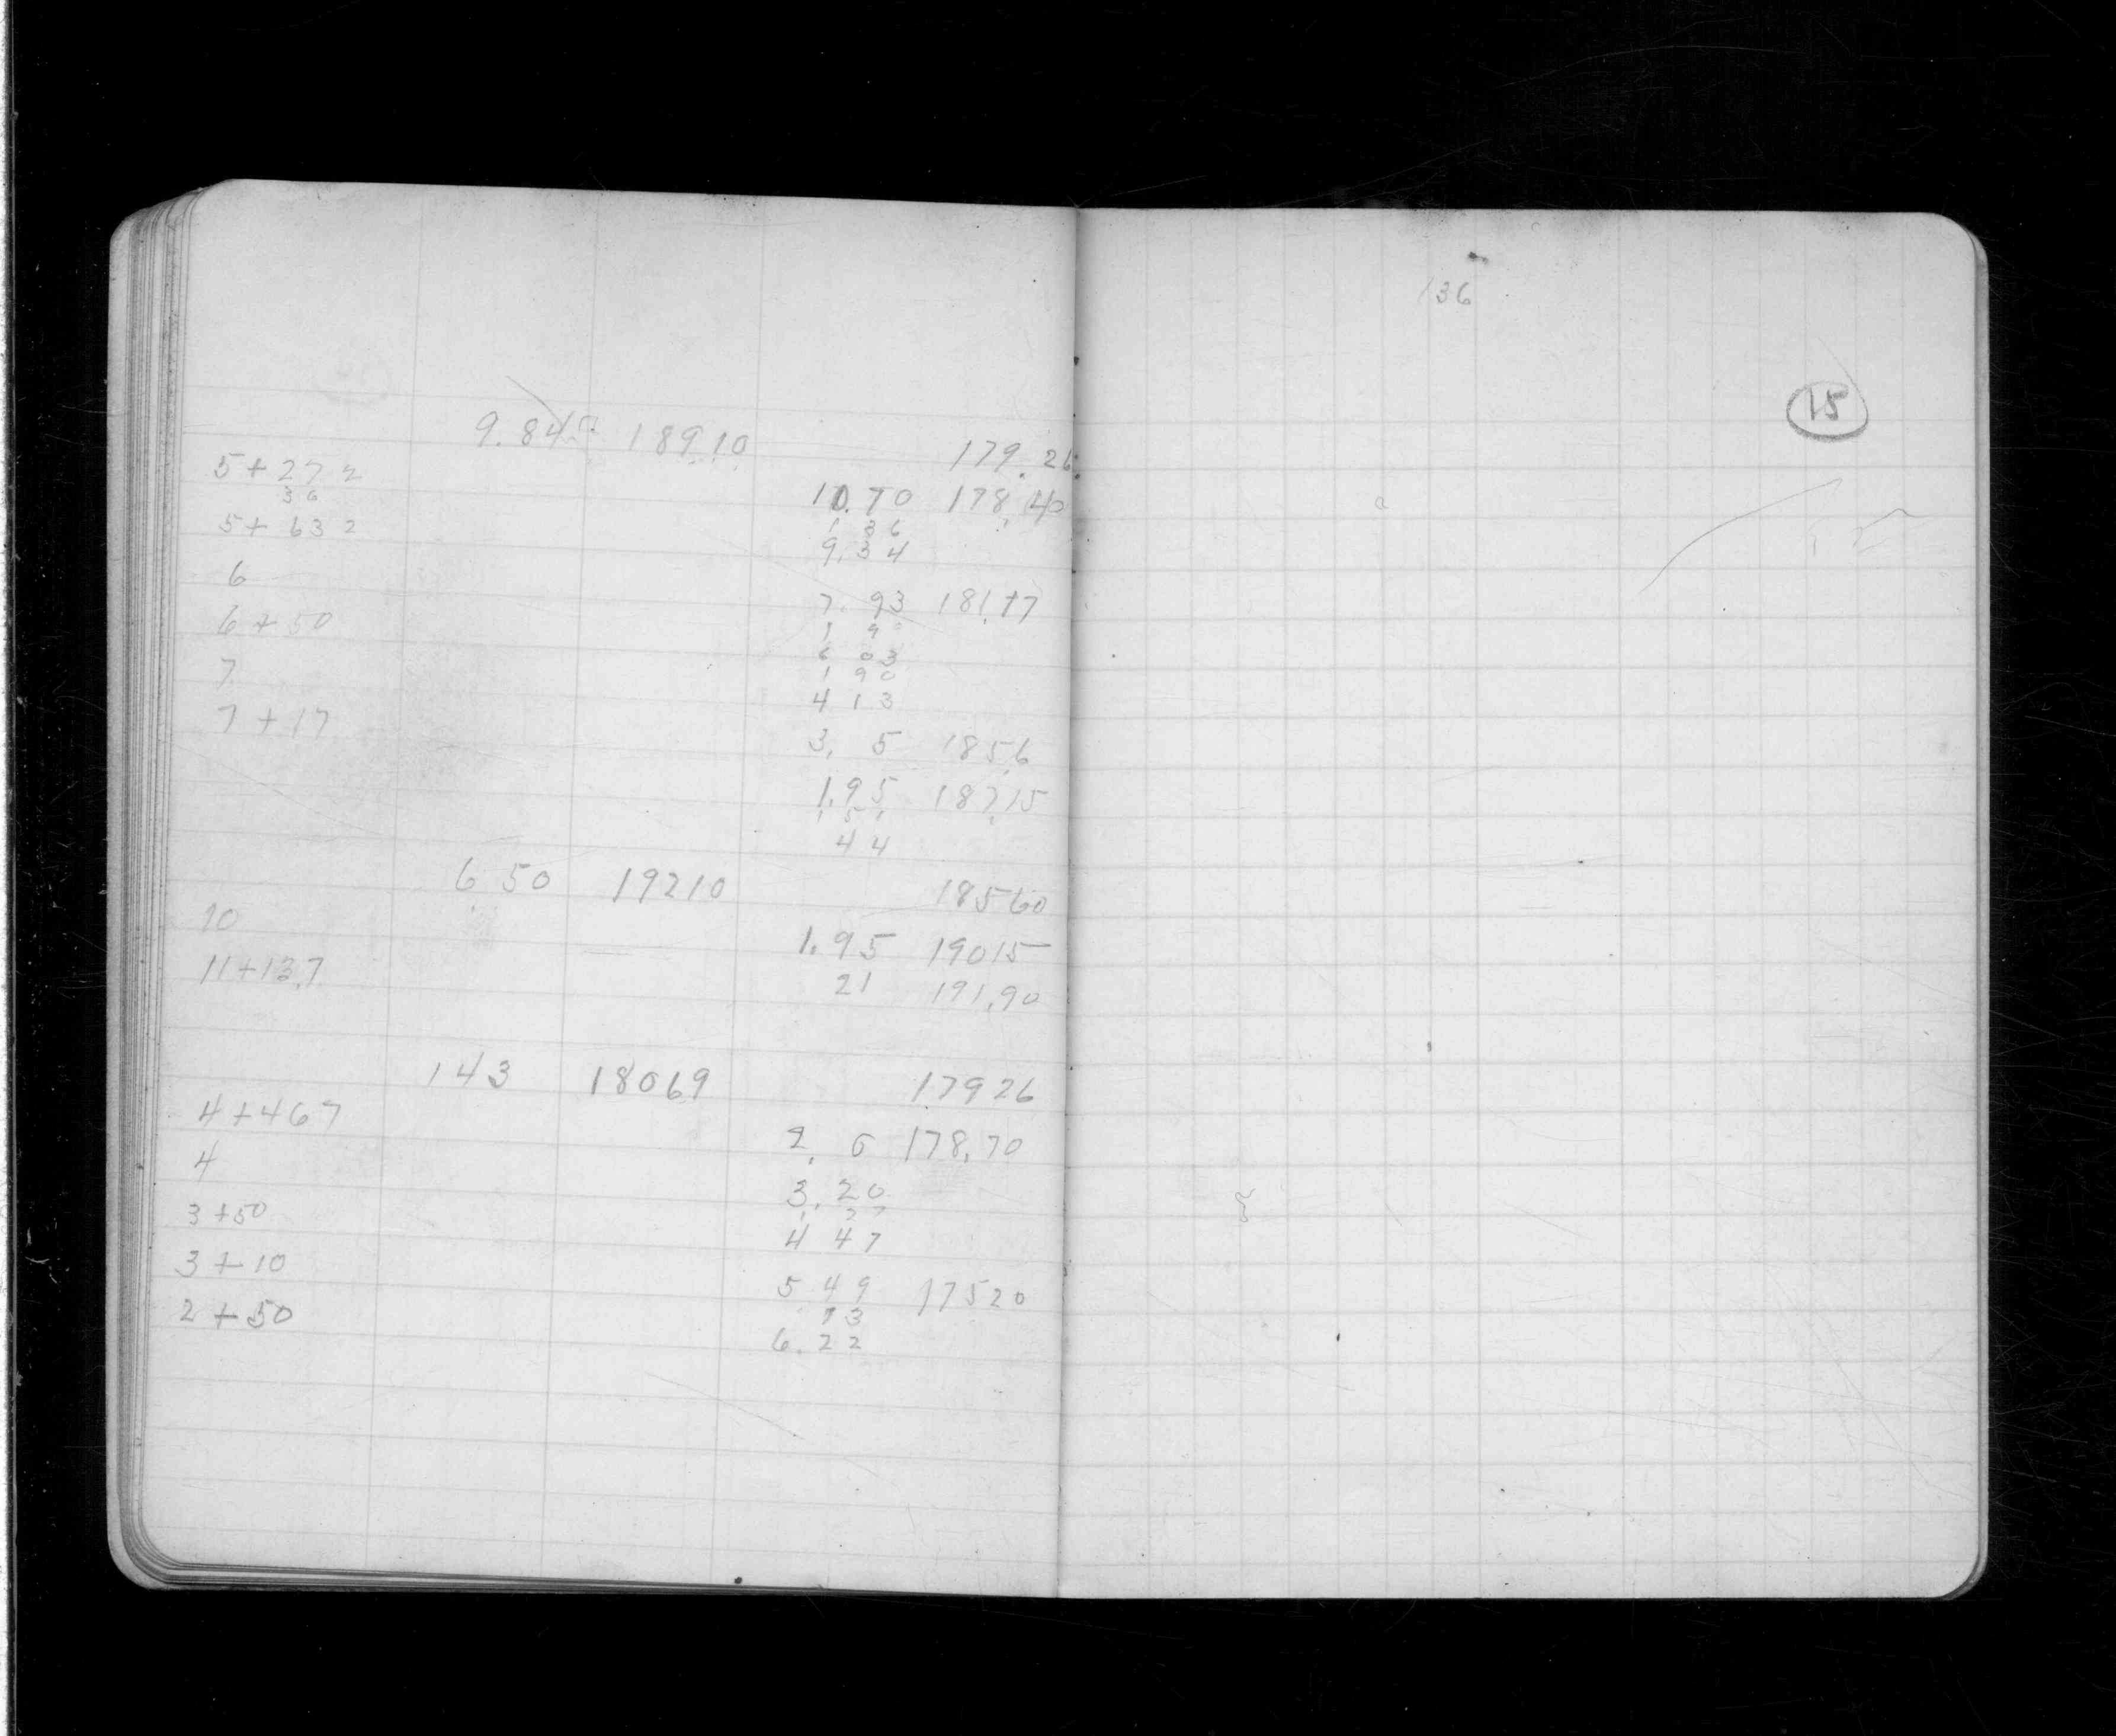 9.84 189.10 179.26
5+27 2 10.70 178.40
36 1 36
5+ 63 2 9.34
6 7. 93 181.17
6+50 1 9
6 03
7 1 90
4 13
7+17 3. 5 185.6
1.95 187.15
1 51
44
6 50 19210 18560
10 1.95 19015
11+13.7 21 191.90
143 18069 17926
4+467 2. 0 178.70
4 3.20
1 27
3+50 4 47
3+10 5 49 17520
73
2+50 6.22
136
15